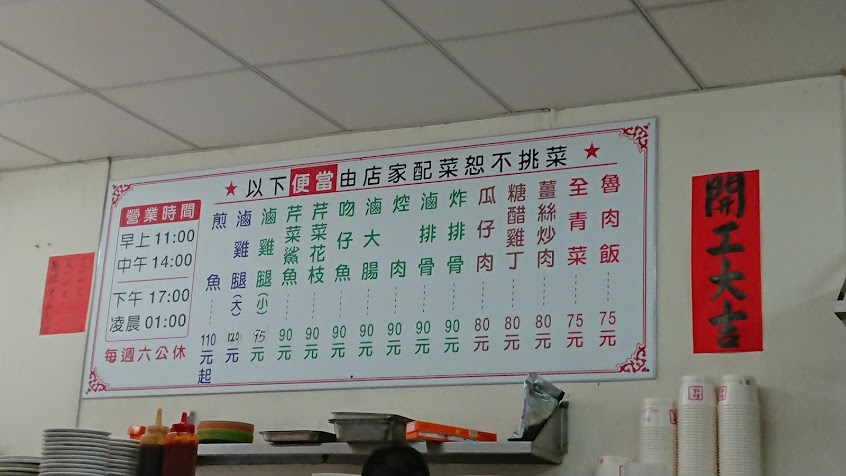 ★以下便當由店家配菜恕不挑菜★
營業時間
早上 11:00
中午 14:00
下午 17:00
凌晨 01:00
每週六公休
魯肉飯 75元
全青菜 75元
薑絲炒肉 80元
糖醋雞丁 80元
瓜仔肉 80元
炸排骨 90元
滷排骨 90元
焢肉 90元
滷大腸 90元
吻仔魚 90元
芹菜花枝 90元
芹菜鯊魚 90元
滷雞腿(小) 75元
滷雞腿(大) 120元
煎魚 110元起
開工大吉